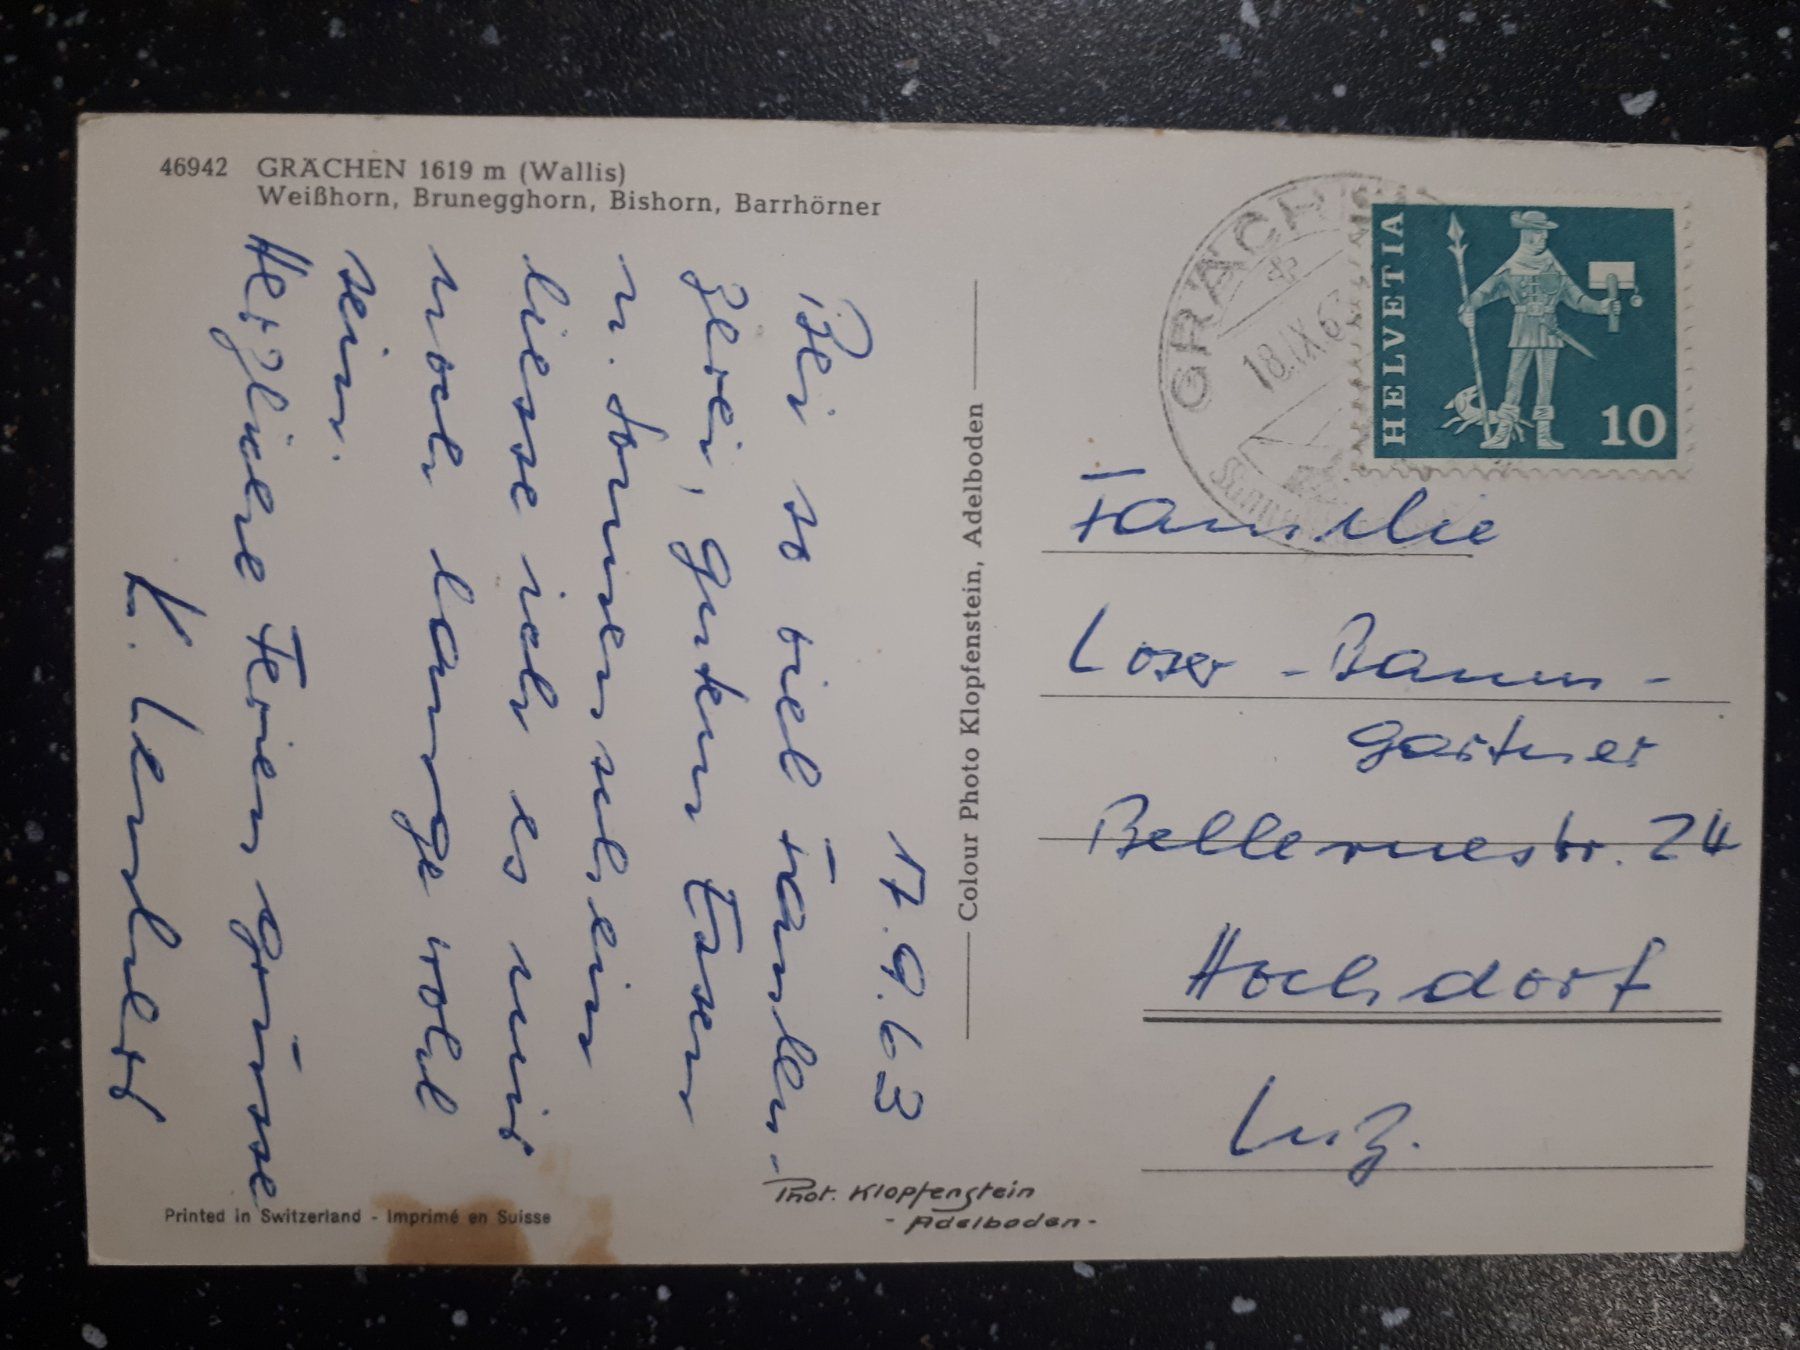 46942 GRÄCHEN 1619 m (Wallis)
Weißhorn, Brunegghorn, Bishorn, Barrhörner
17.9.63
Bei so viel Faulen-
zerei, gutem Essen
u. Sonnenschein
liesse ich es mir
noch lange wohl
sein.
Herzliche Feriengrüsse
K.
Colour Photo Klopfenstein, Adelboden
GRÄCHEN
18.IX.63
HELVETIA
10
Familie
Loser - Baum-
gartner
Bellevuestr. 24
Hochdorf
Luz.
Phot. Klopfenstein
- Adelboden -
Printed in Switzerland - Imprimé en Suisse